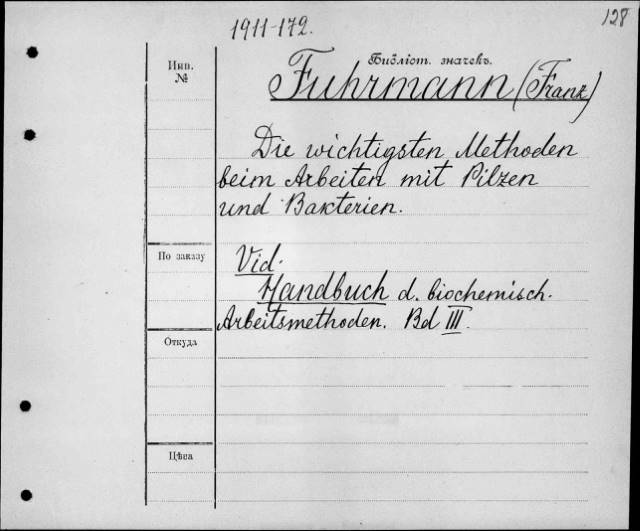 128
1911-172.
Инв.
№
Библіот. значекъ.
Fuhrmann (Franz)
Die wichtigsten Methoden
beim Arbeiten mit Pilzen
und Bakterien.
По заказу
Vid.
Handbuch d. biochemisch.
Arbeitsmethoden. Bd III.
Откуда
Цѣна